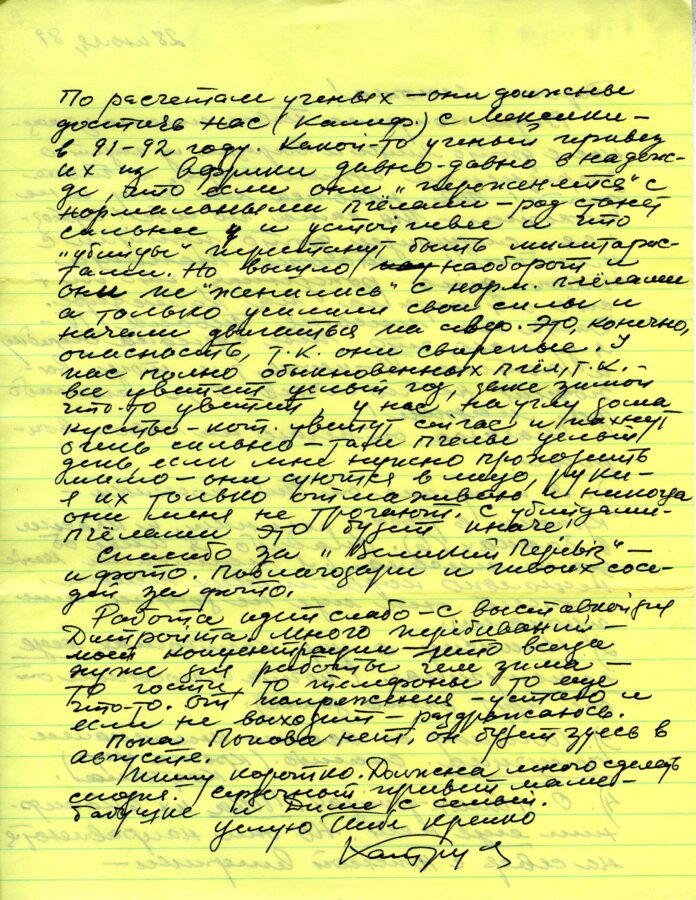 28 июля, 89
По расчетам ученых — они должны
достичь нас (Калиф.) с Мексики —
в 91-92 году. Какой-то ученый привез
их из Африки давно-давно в надеж-
де, что если они „переженятся" с
нормальными пчёлами — род станет
сильнее и устойчивее и что
„убийцы" перестанут быть милитарис-
тами. Но вышло наоборот и
они не "женились" с норм. пчёлами
а только усилили свои силы и
начали двигаться на север. Это, конечно,
опасность, т.к. они свирепые. У
нас полно обыкновенных пчёл, т.к. —
все цветет целый год, даже зимой
что-то цветет, у нас на углу дома
кусты — кот. цветут сейчас и пахнут
очень сильно — там пчелы целый
день, если мне нужно проходить
мимо — они суются в лицо, руки —
я их только отмахиваю и никогда
они меня не трогают. С убийцами-
пчёлами это будет иначе!
Спасибо за „Великий Перевіз" —
и фото. Поблагодари и твоих сосе-
дей за фото.
Работа идет слабо — с выставкой для
Дитройта. Много перебиваний —
моей концентрации — лето всегда
хуже для работы чем зима —
то гости, то телефоны то еще
что-то. От напряжения — устаю и
если не выходит — раздражаюсь.
Пока Попова нет, он будет здесь в
августе.
Пишу коротко. Должна много сделать
сегодня. Сердечный привет маме-
бабушке и Диме с семьей.
Целую Тебя крепко